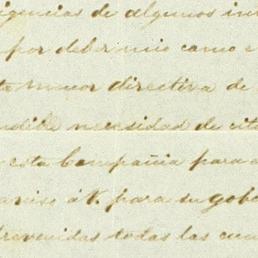 igencias de algunos in
por deber mio como e
ta menor directiva de
ndible necesidad de cita
esta Compañia para
aviso á V. para su gob
prevenidas todas las cu